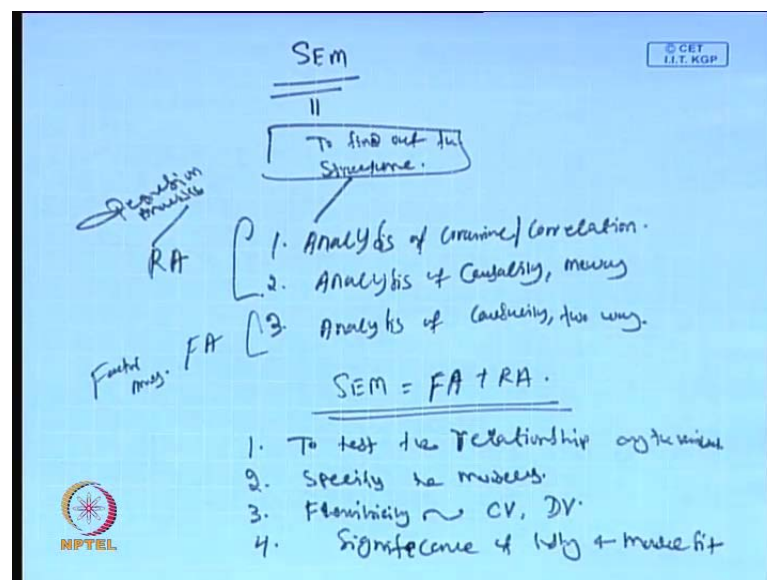 SEM
© CET
I.I.T. KGP
To find out the
Structure.
Regression
Analysis
RA
1. Analysis of Covariance/Correlation.
2. Analysis of Causality, oneway
3. Analysis of Causality, two way.
FA
Factor
SEM = FA + RA.
1. To test the relationship
2. Specify the models.
3. Flexibility ~ CV, DV.
4. Significance of + model fit
NPTEL